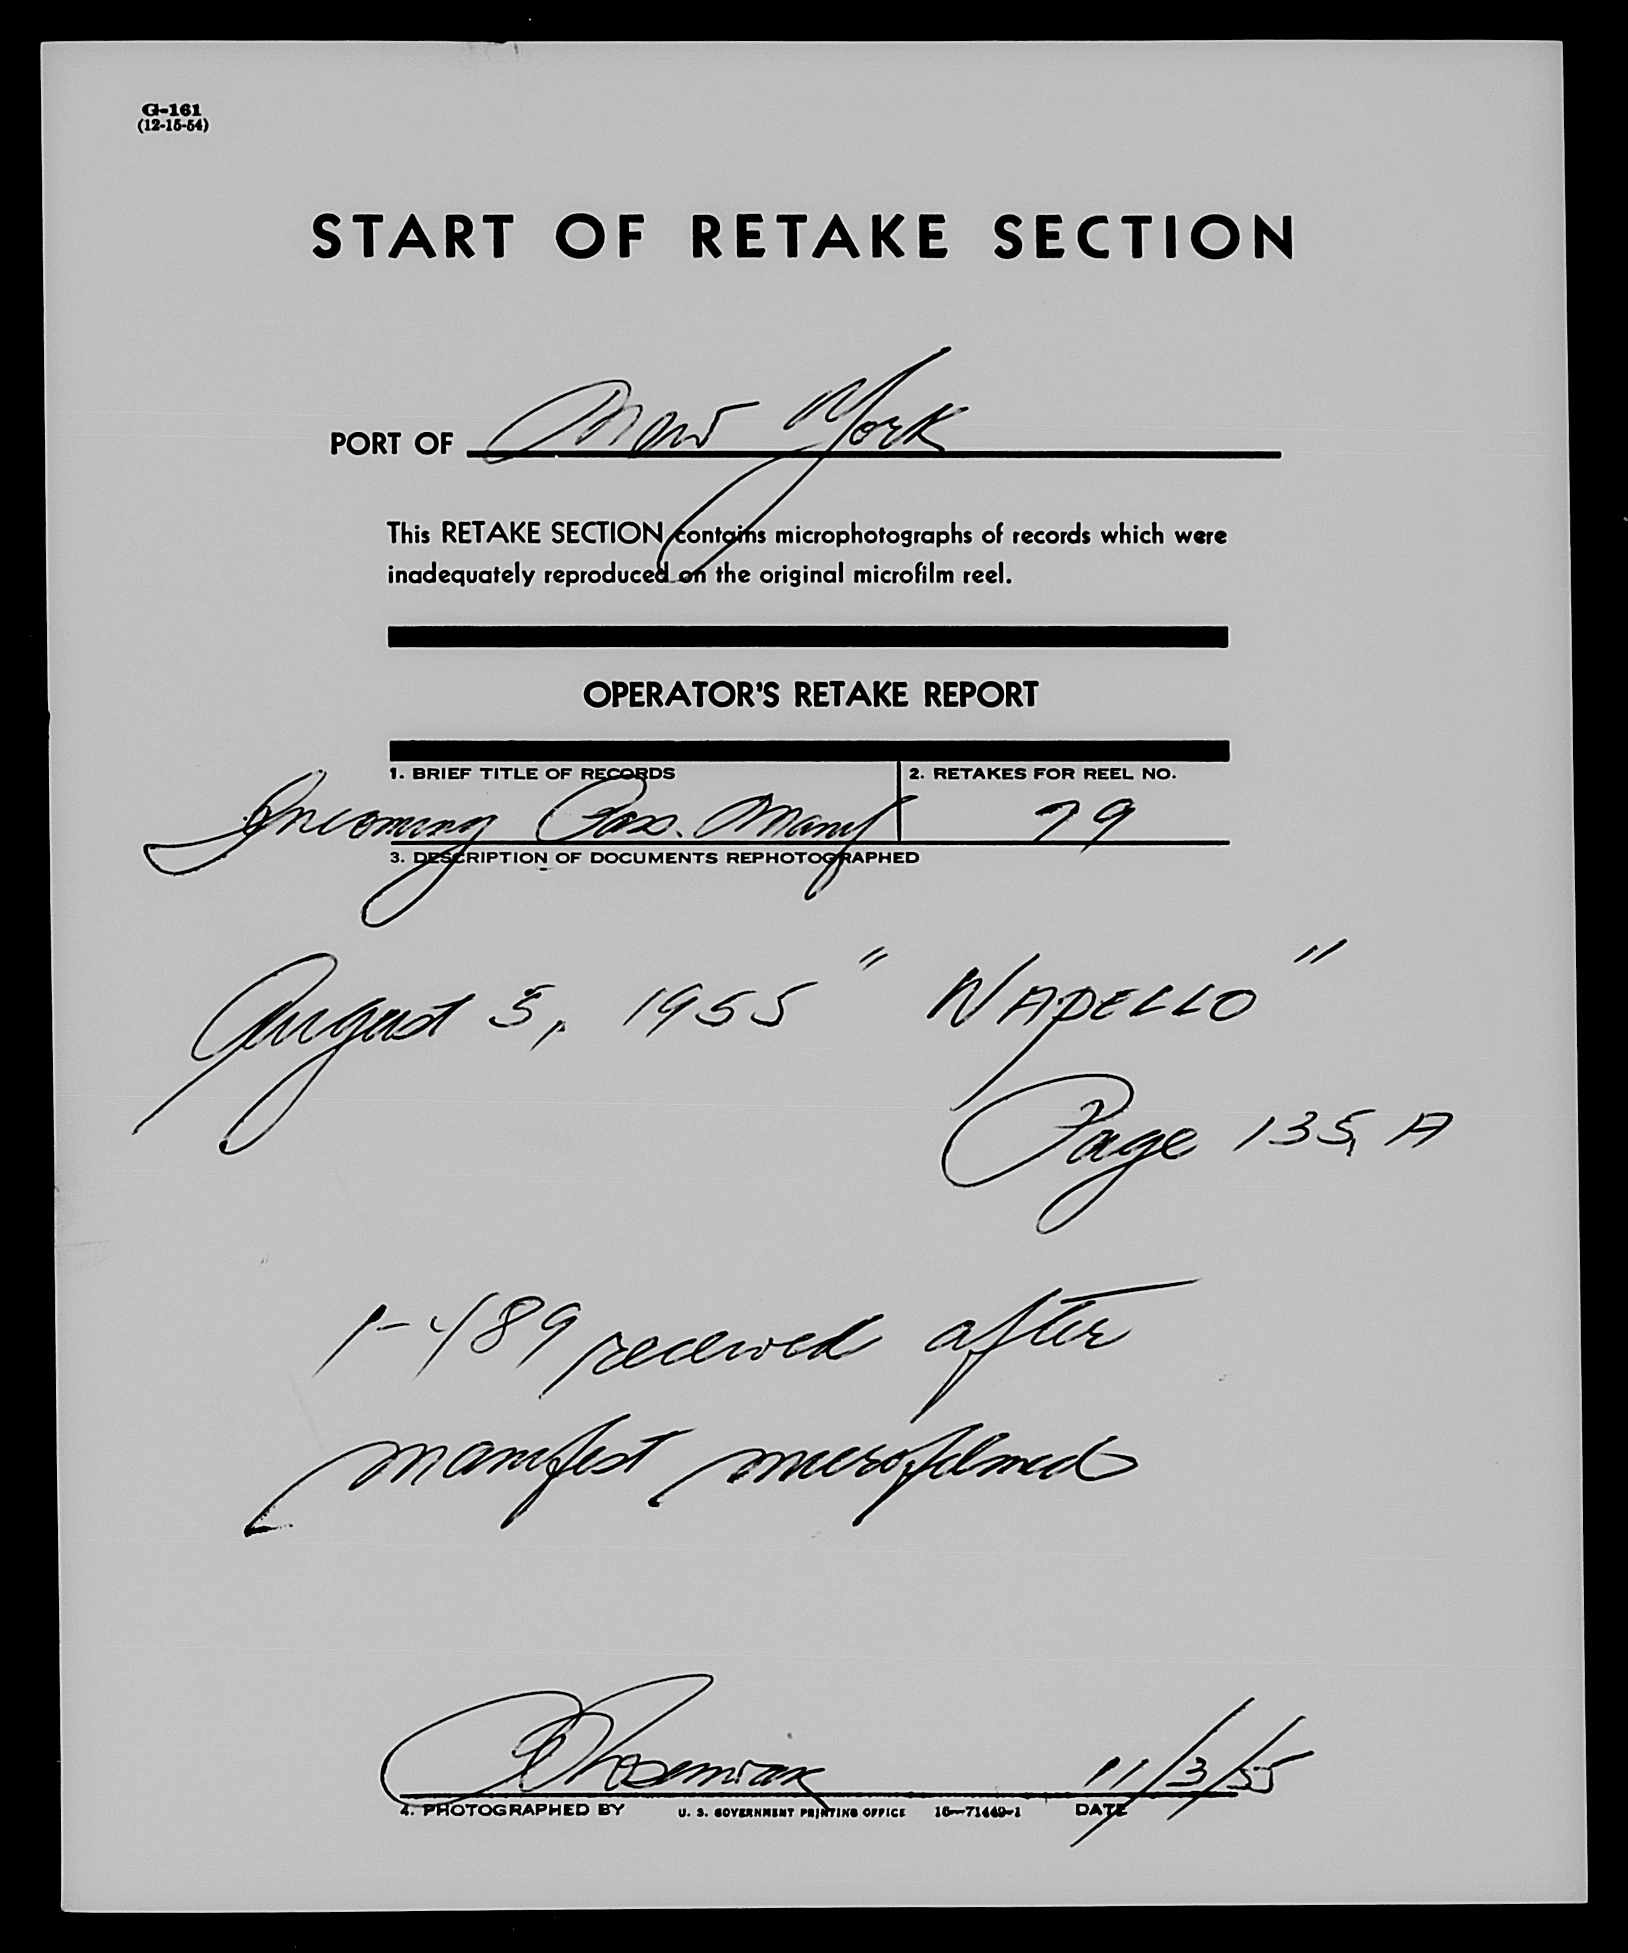 G-161
(12-15-54)
START OF RETAKE SECTION
PORT OF New York
This RETAKE SECTION contains microphotographs of records which were
inadequately reproduced on the original microfilm reel.
OPERATOR'S RETAKE REPORT
1. BRIEF TITLE OF RECORDS 2. RETAKES FOR REEL NO.
Incoming Pass. Manf 79
3. DESCRIPTION OF DOCUMENTS REPHOTOGRAPHED
August 5, 1955 " WAPELLO "
Page 135, A
1-489 received after
manifest microfilmed
11/3/55
4. PHOTOGRAPHED BY U. S. GOVERNMENT PRINTING OFFICE 16—71449-1 DATE